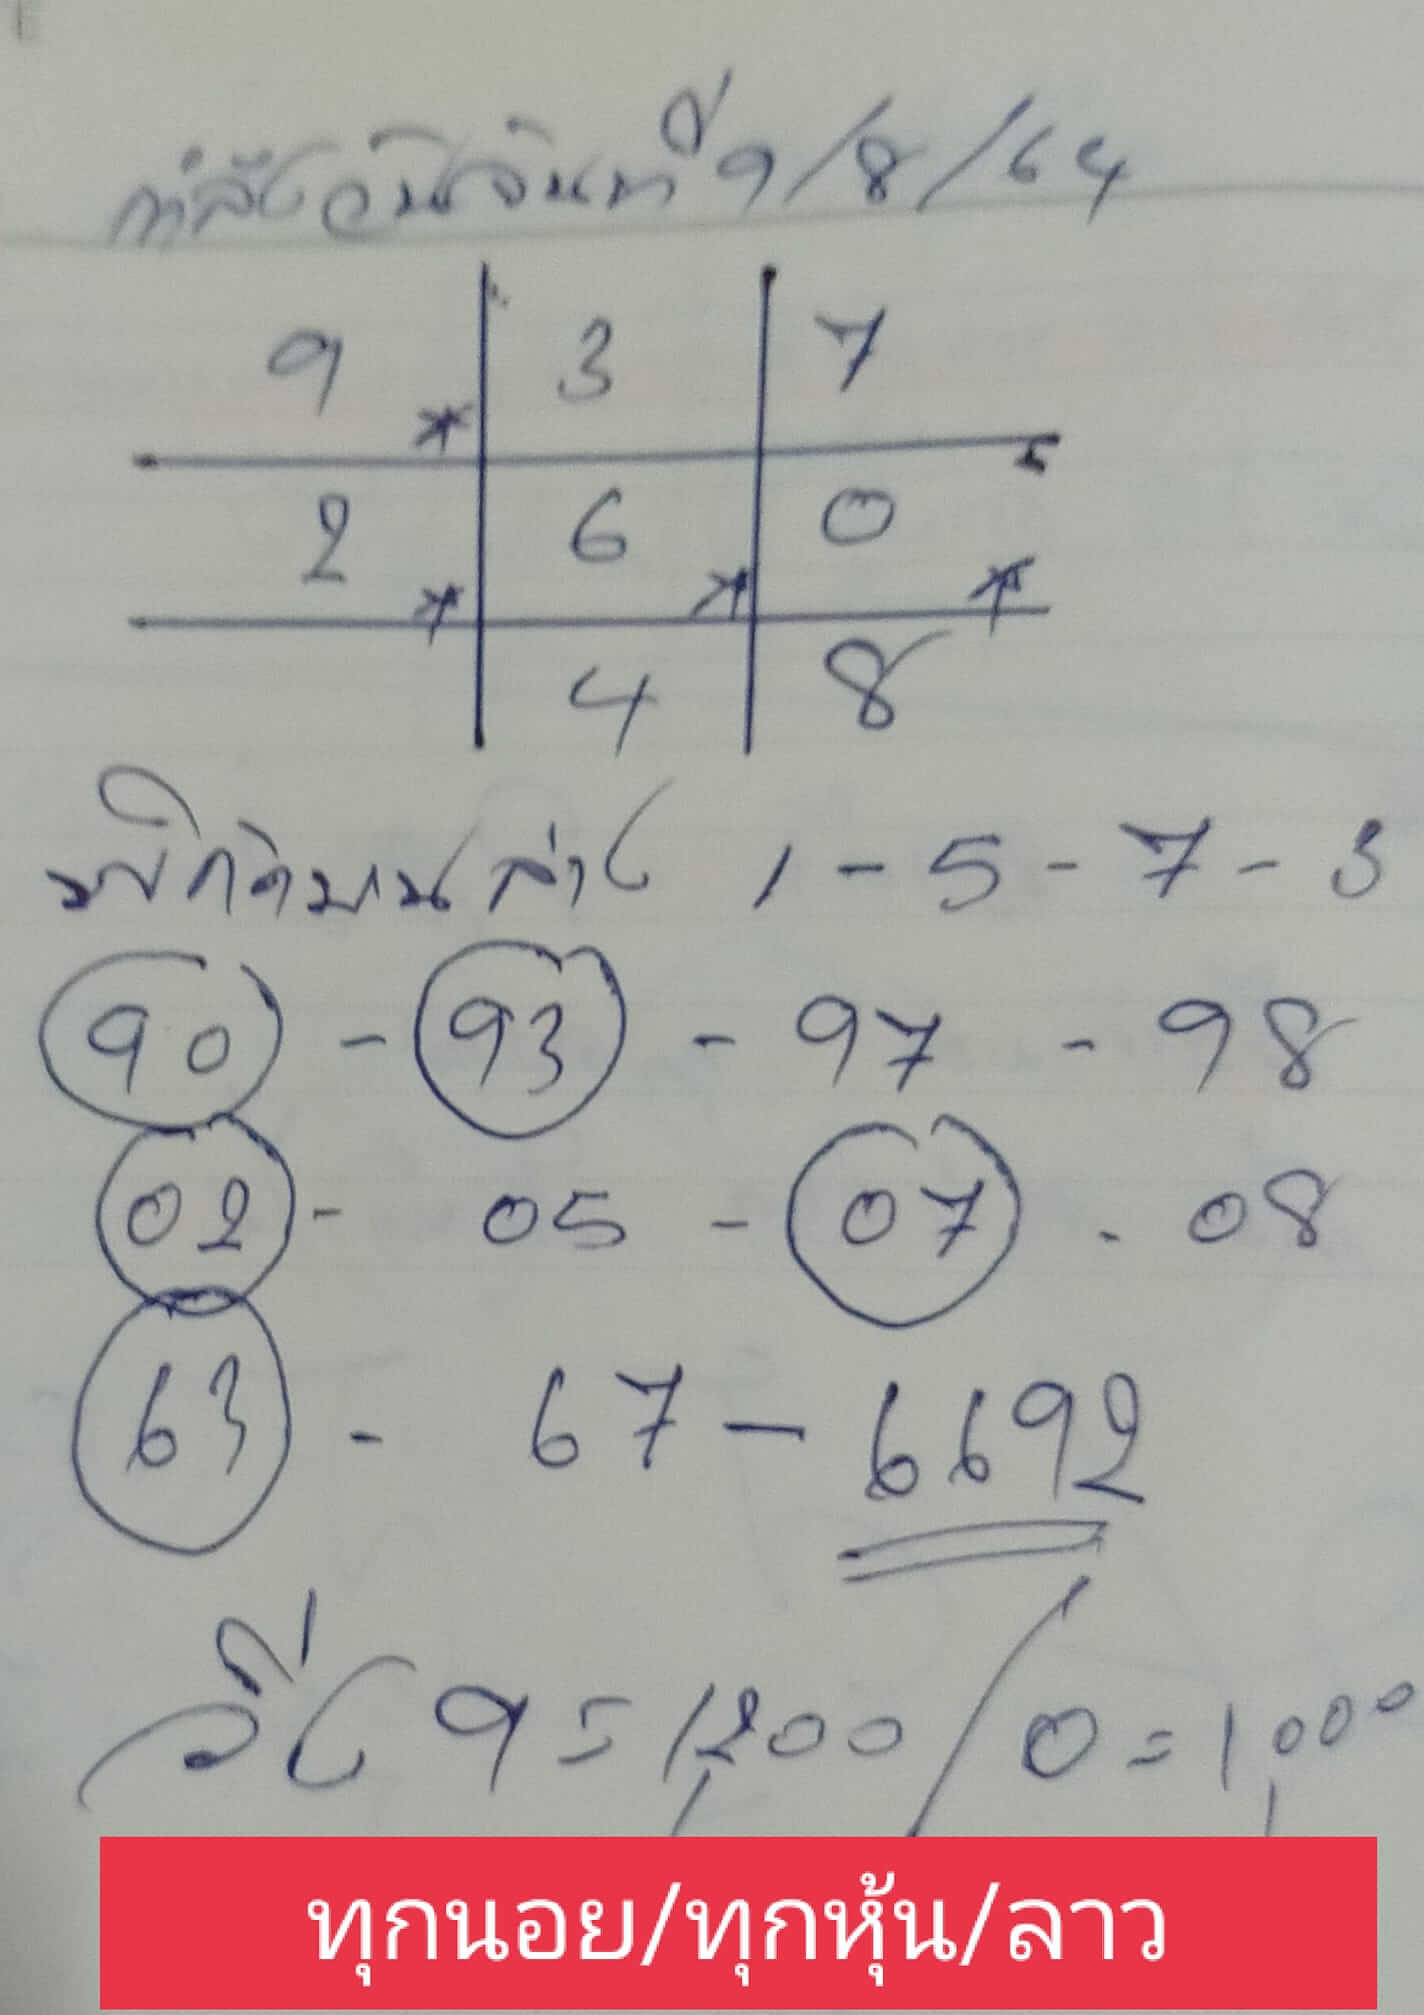 กำลังวันจันทร์ที่ 9/8/64
9 3 7
2 6 0
4 8
พิกัดบนล่าง 1-5-7-3
90 - 93 - 97 - 98
02 - 05 - 07 - 08
63 - 67 - 6692
วิ่ง 9 = 1,200 / 0 = 1,000
ทุกนอย/ทุกหุ้น/ลาว